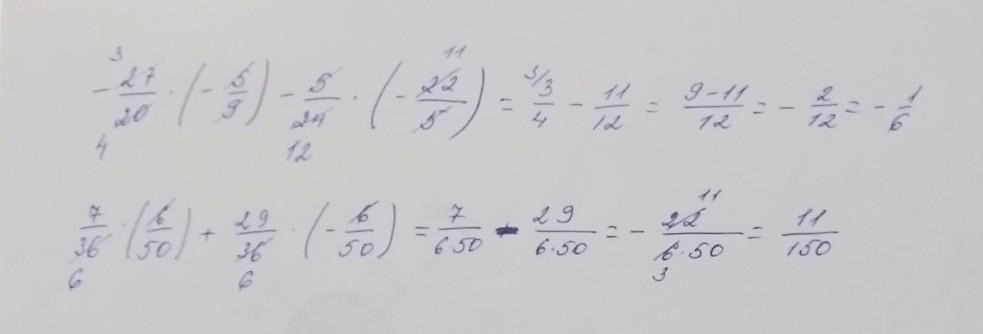 -27/20 · (-5/9) - 5/24 · (-22/5) = 3/4 - 11/12 = (9-11)/12 = -2/12 = -1/6
7/36 · (6/50) + 29/36 · (-6/50) = 7/(6·50) - 29/(6·50) = -22/(6·50) = 11/150